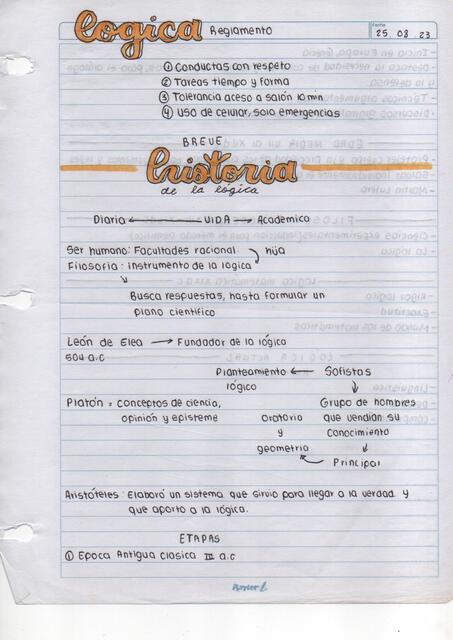 Logica Reglamento
Fecha
25 08 23
① Conductas con respeto
② Tareas tiempo y forma
③ Tolerancia aceso a salón 10 min
④ Uso de celular, solo emergencias
BREVE
historia
de la lógica
Diaria ← VIDA → Academico
Ser humano: Facultades racional hija
Filosofia: instrumento de la logica
Busca respuestas, hasta formular un
plano científico
León de Elea → Fundador de la lógico
500 a.c
Planteamiento ← Sofistas
lógico
Platón = conceptos de ciencia,
opinión y episteme
Grupo de hombres
que vendían su
conocimiento
Oratorio
y
geometria
Principal
Aristóteles: Elaboró un sistema que sirvio para llegar a la verdad y
que aporto a la lógica.
ETAPAS
① Epoca Antigua clasica III a.c